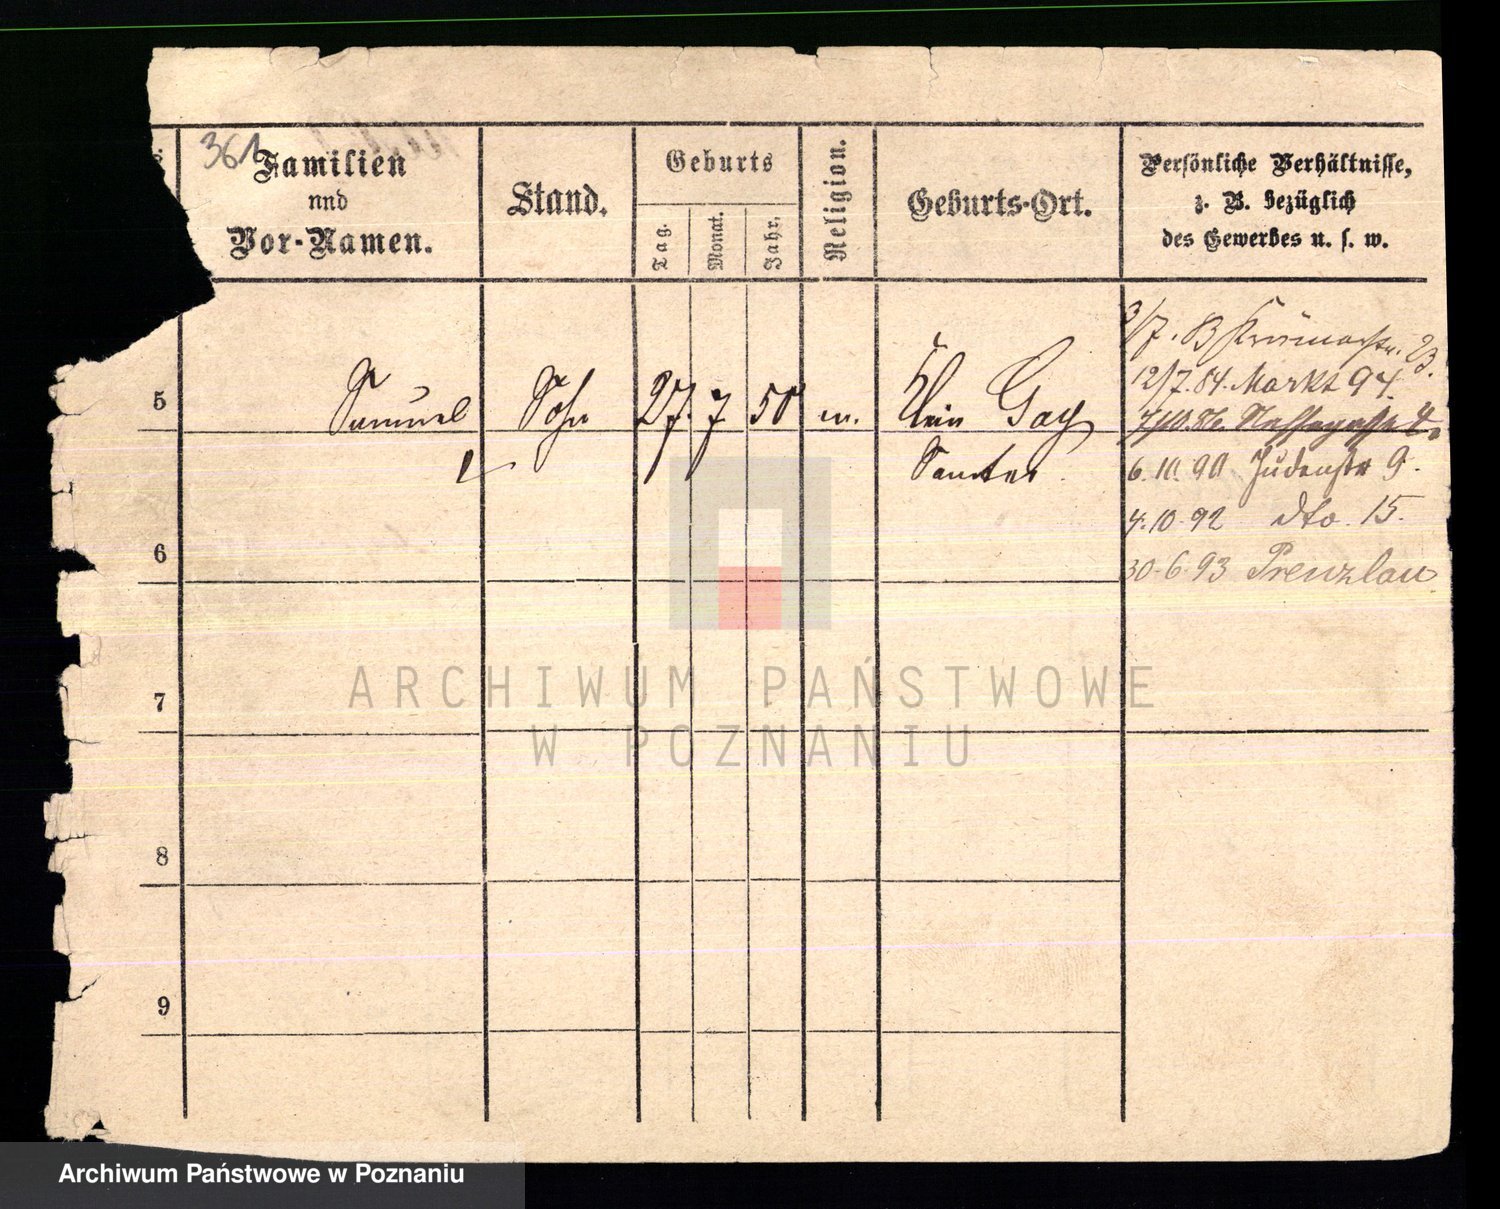 361
Familien
und
Vor-Namen.
Stand.
Geburts
Tag.
Monat.
Jahr.
Religion.
Geburts-Ort.
Persönliche Verhältnisse,
z. B. bezüglich
des Gewerbes u. s. w.
3/7. 83 Krämerstr. 23.
12/7. 84. Markt 94.
5 Samuel Sohn 27. 7 50 m. Klein Gay
7/10. 86.
Samter.
6. 10. 90 Judenstr 9.
4. 10. 92 dto. 15.
6
30. 6. 93 Prenzlau
7
8
9
ARCHIWUM PAŃSTWOWE
W POZNANIU
Archiwum Państwowe w Poznaniu